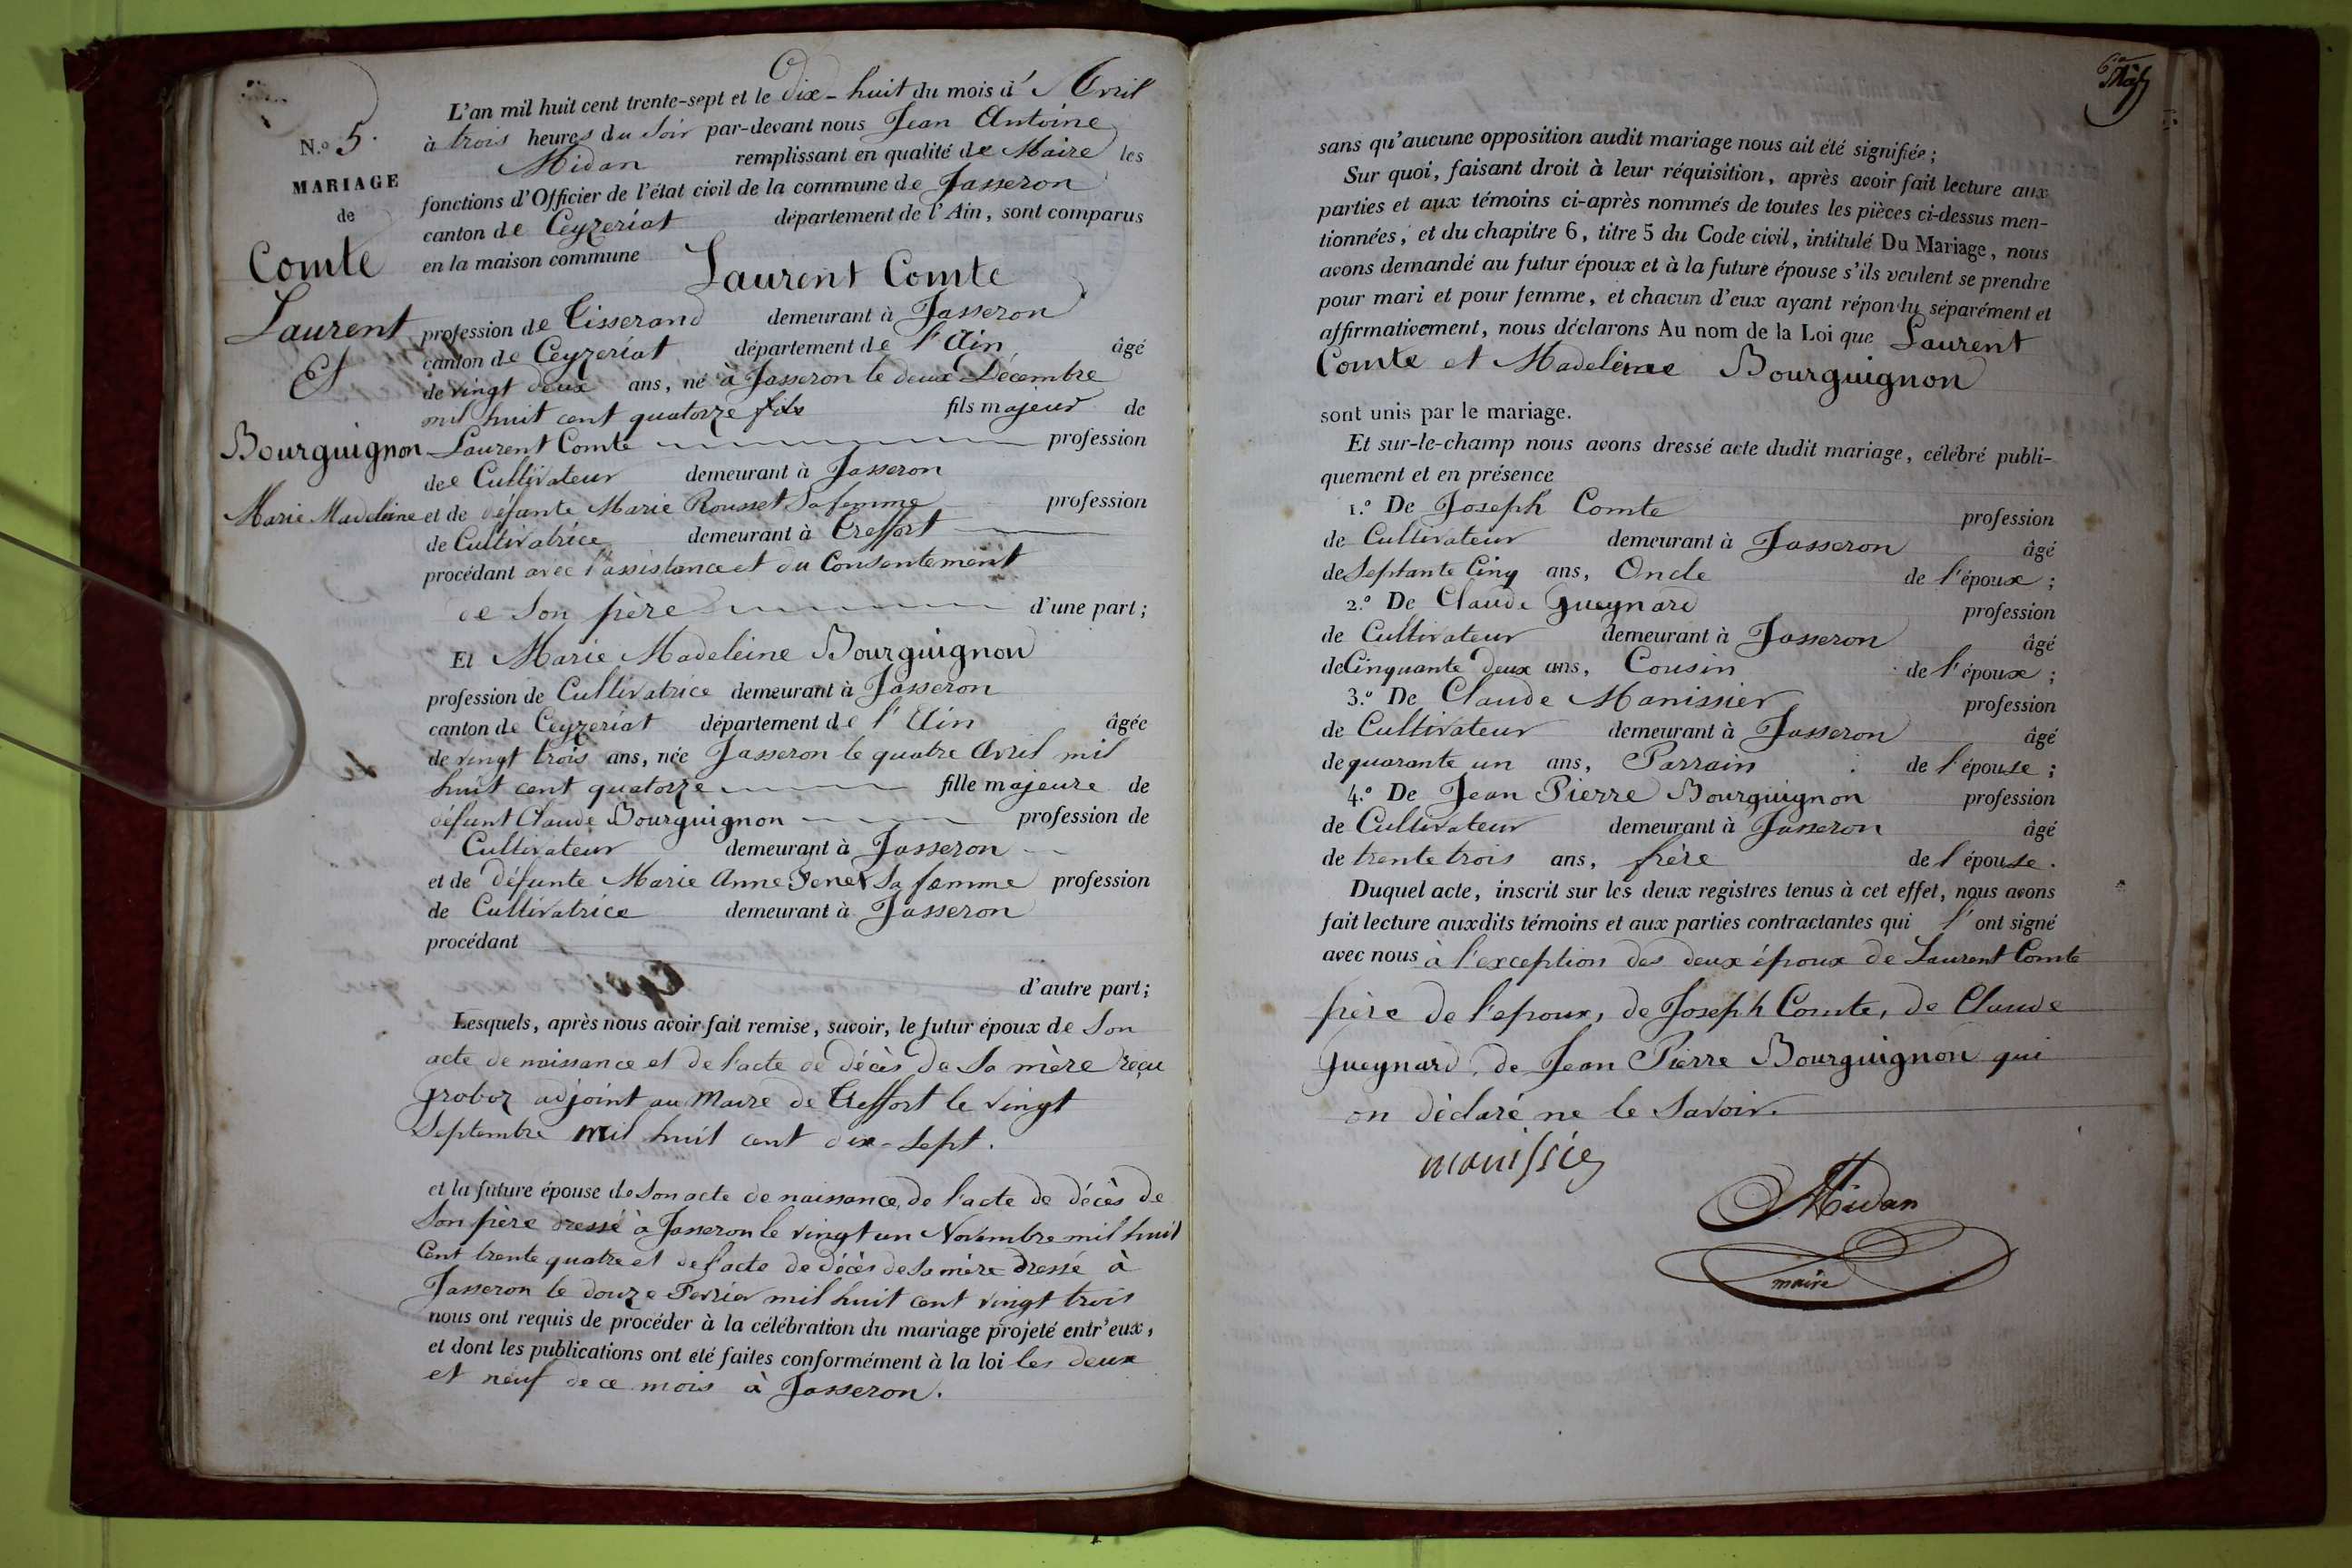 N.º 5.
MARIAGE
de
Comte
Laurent
Et
Bourguignon
Marie Madeleine
L'an mil huit cent trente-sept et le Dix-huit du mois d'Avril
à trois heures du soir par-devant nous Jean Antoine
Midan remplissant en qualité de Maire les
fonctions d'Officier de l'état civil de la commune de Jasseron
canton de Ceyzeriat département de l'Ain, sont comparus
en la maison commune Laurent Comte
profession de Tisserand demeurant à Jasseron
canton de Ceyzeriat département de l'Ain âgé
de vingt deux ans, né à Jasseron le deux Décembre
mil huit cent quatorze fils fils majeur de
Laurent Comte profession
dee Cultivateur demeurant à Jasseron
et de défunte Marie Rousset Sa femme profession
de Cultivatrice demeurant à Treffort
procédant avec l'assistance et du Consentement
de Son père d'une part;
Et Marie Madeleine Bourguignon
profession de Cultivatrice demeurant à Jasseron
canton de Ceyzeriat département de l'Ain âgée
de vingt trois ans, née Jasseron le quatre Avril mil
huit cent quatorze fille majeure de
défunt Claude Bourguignon profession de
Cultivateur demeurant à Jasseron
et de défunte Marie Anne Fenet Sa femme profession
de Cultivatrice demeurant à Jasseron
procédant
d'autre part;
Lesquels, après nous avoir fait remise, savoir, le futur époux de Son
acte de naissance et de l'acte de décès de Sa mère reçu
Proboz adjoint au Maire de Treffort le vingt
Septembre mil huit cent dix-sept.
et la future épouse de Son acte de naissance, de l'acte de décès de
Son père dressé à Jasseron le vingt un Novembre mil huit
Cent trente quatre et de l'acte de décès de Sa mère dressé à
Jasseron le douze Fevrier mil huit cent vingt trois
nous ont requis de procéder à la célébration du mariage projeté entr'eux,
et dont les publications ont été faites conformément à la loi les deux
et neuf de ce mois à Jasseron.
sans qu'aucune opposition audit mariage nous ait été signifiée;
Sur quoi, faisant droit à leur réquisition, après avoir fait lecture aux
parties et aux témoins ci-après nommés de toutes les pièces ci-dessus men-
tionnées, et du chapitre 6, titre 5 du Code civil, intitulé Du Mariage, nous
avons demandé au futur époux et à la future épouse s'ils veulent se prendre
pour mari et pour femme, et chacun d'eux ayant répondu séparément et
affirmativement, nous déclarons Au nom de la Loi que Laurent
Comte et Madeleine Bourguignon
sont unis par le mariage.
Et sur-le-champ nous avons dressé acte dudit mariage, célébré publi-
quement et en présence
1.º De Joseph Comte profession
de Cultivateur demeurant à Jasseron âgé
de Septante Cinq ans, Oncle de l'époux;
2.º De Claude Gueynard profession
de Cultivateur demeurant à Jasseron âgé
de Cinquante deux ans, Cousin de l'époux;
3.º De Claude Manissier profession
de Cultivateur demeurant à Jasseron âgé
de quarante un ans, Parrain de l'épouse;
4.º De Jean Pierre Bourguignon profession
de Cultivateur demeurant à Jasseron âgé
de trente trois ans, frère de l'épouse.
Duquel acte, inscrit sur les deux registres tenus à cet effet, nous avons
fait lecture auxdits témoins et aux parties contractantes qui l'ont signé
avec nous à l'exception des deux époux de Laurent Comte
père de l'epoux, de Joseph Comte, de Claude
Gueynard, de Jean Pierre Bourguignon qui
on déclaré ne le Savoir.
manissier
Midan
maire